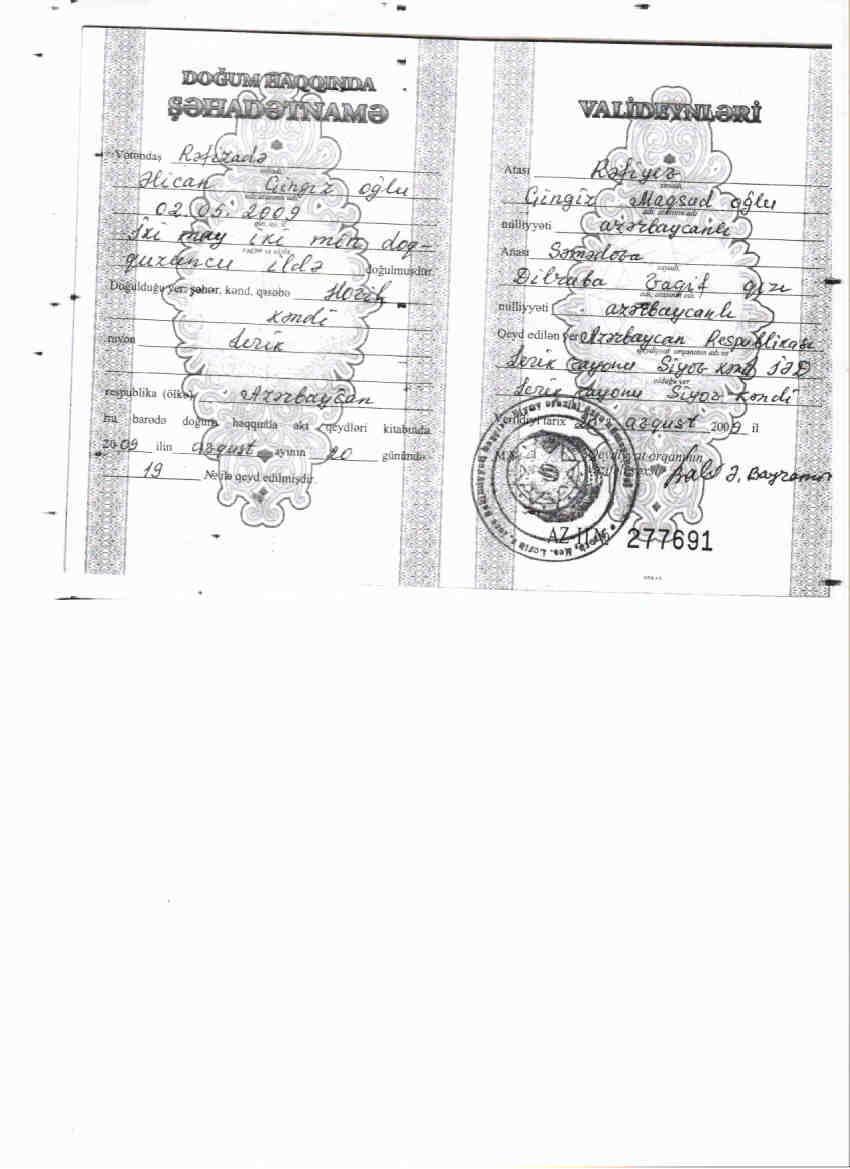 DOĞUM HAQQINDA
ŞƏHADƏTNAMƏ
Vətəndaş Rəfizadə
soyadı,
Əlican Çingiz oğlu
02. 05. 2009
gün, ay, il
İki may iki min doq-
quzuncu ildə doğulmuşdur
Doğulduğu yer: şəhər, kənd, qəsəbə
kəndi
rayon Lerik
respublika (ölkə) Azərbaycan
bu barədə doğum haqqında akt qeydləri kitabında
2009 ilin avqust ayının 20 günündə
19 № ilə qeyd edilmişdir.
VALİDEYNLƏRİ
Atası Rəfiyev
soyadı,
Çingiz Maqsud oğlu
adı, atasının adı
milliyyəti azərbaycanlı
Anası Səmədova
soyadı,
Dilruba Vaqif qızı
adı, atasının adı
milliyyəti azərbaycanlı
Qeyd edilən yer Azərbaycan Respublikası
qeydiyyat orqanının adı və
Lerik rayonu Siyov kənd İƏD
olduğu yer
Lerik rayonu Siyov kəndi
Verildiyi tarix 20 avqust 2009 il
M.Y. Qeydiyyat orqanının
Ə. Bayramov
AZ-II № 277691